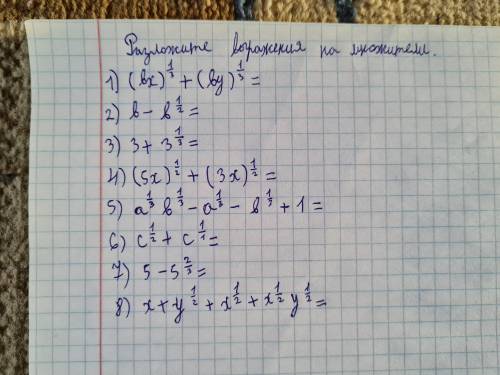 Разложите выражения на множители.
1) (bx)^{1/3} + (by)^{1/3} =
2) b - b^{1/2} =
3) 3 + 3^{1/3} =
4) (5x)^{1/2} + (3x)^{1/2} =
5) a^{1/3} b^{1/3} - a^{1/3} - b^{1/3} + 1 =
6) c^{1/2} + c^{1/1} =
7) 5 - 5^{2/3} =
8) x + y^{1/2} + x^{1/2} + x^{1/2} y^{1/2} =